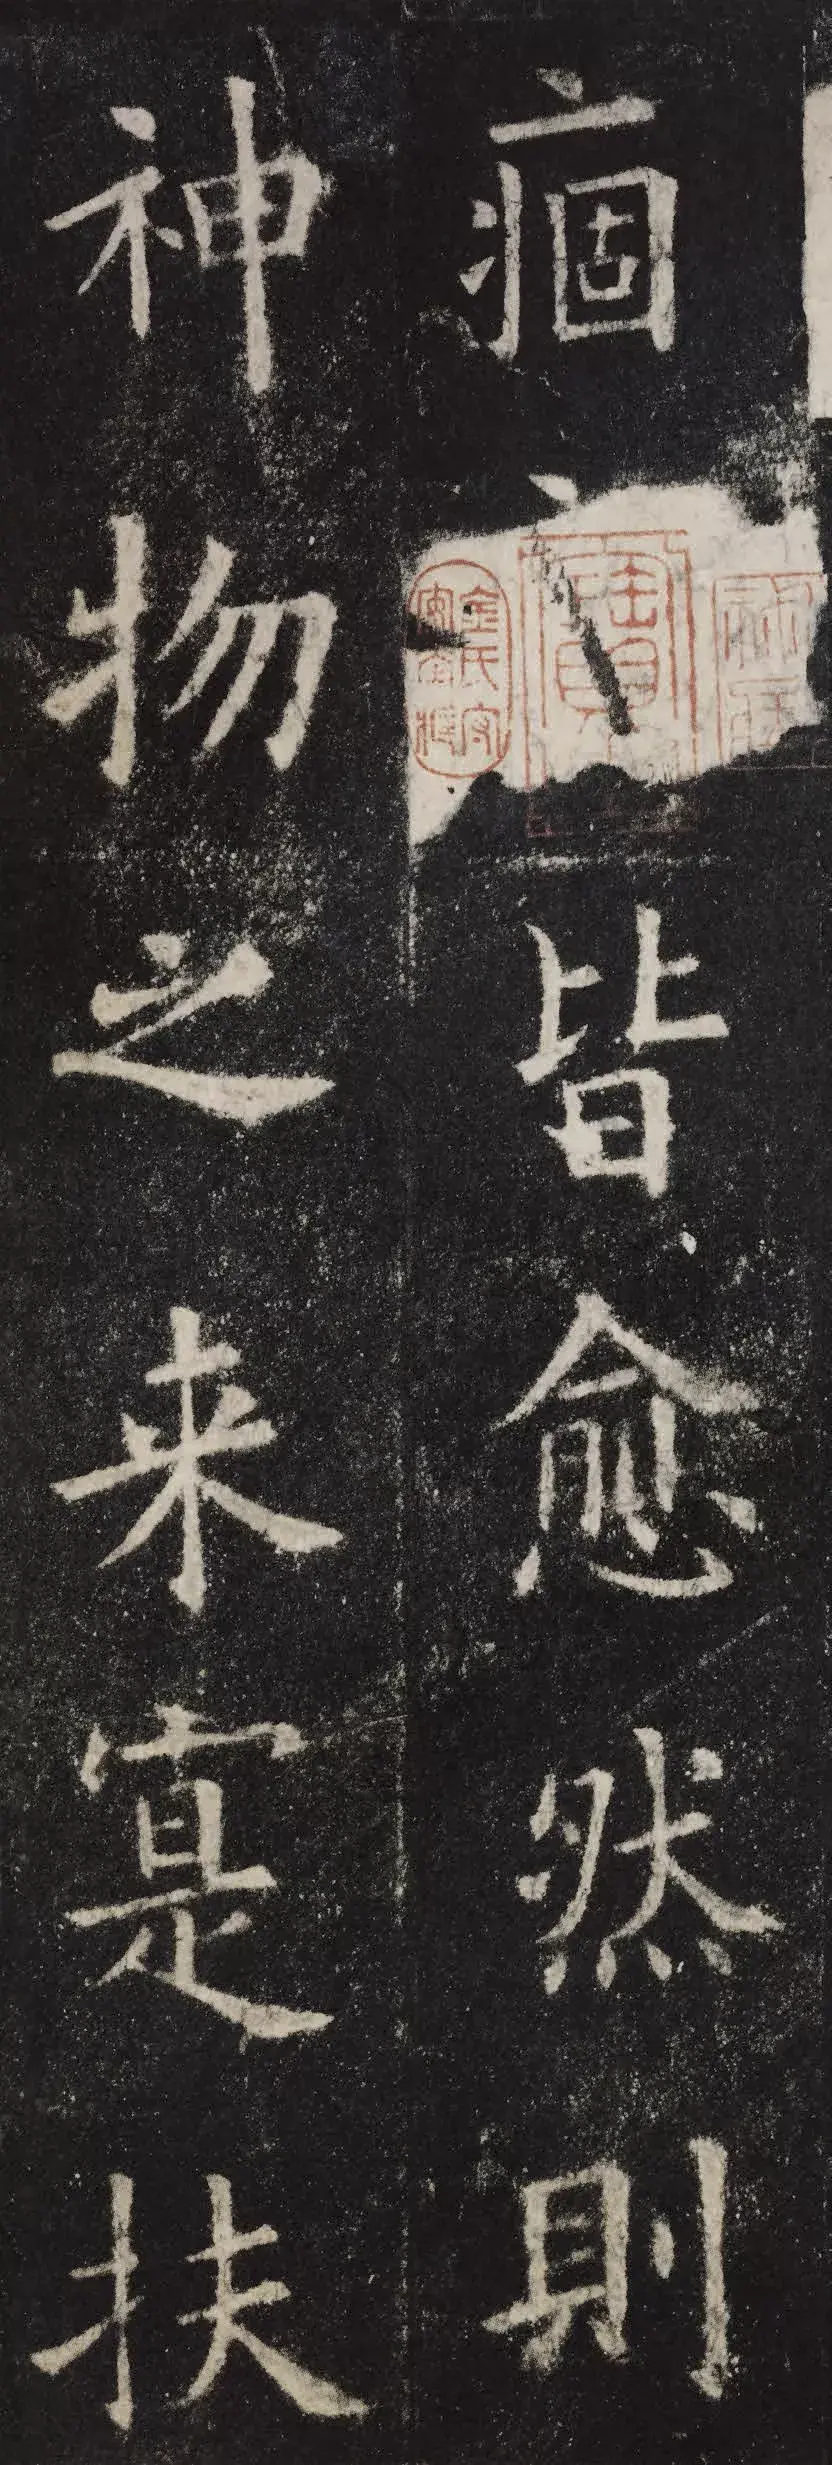 痼皆愈然則
神物之来寔扶